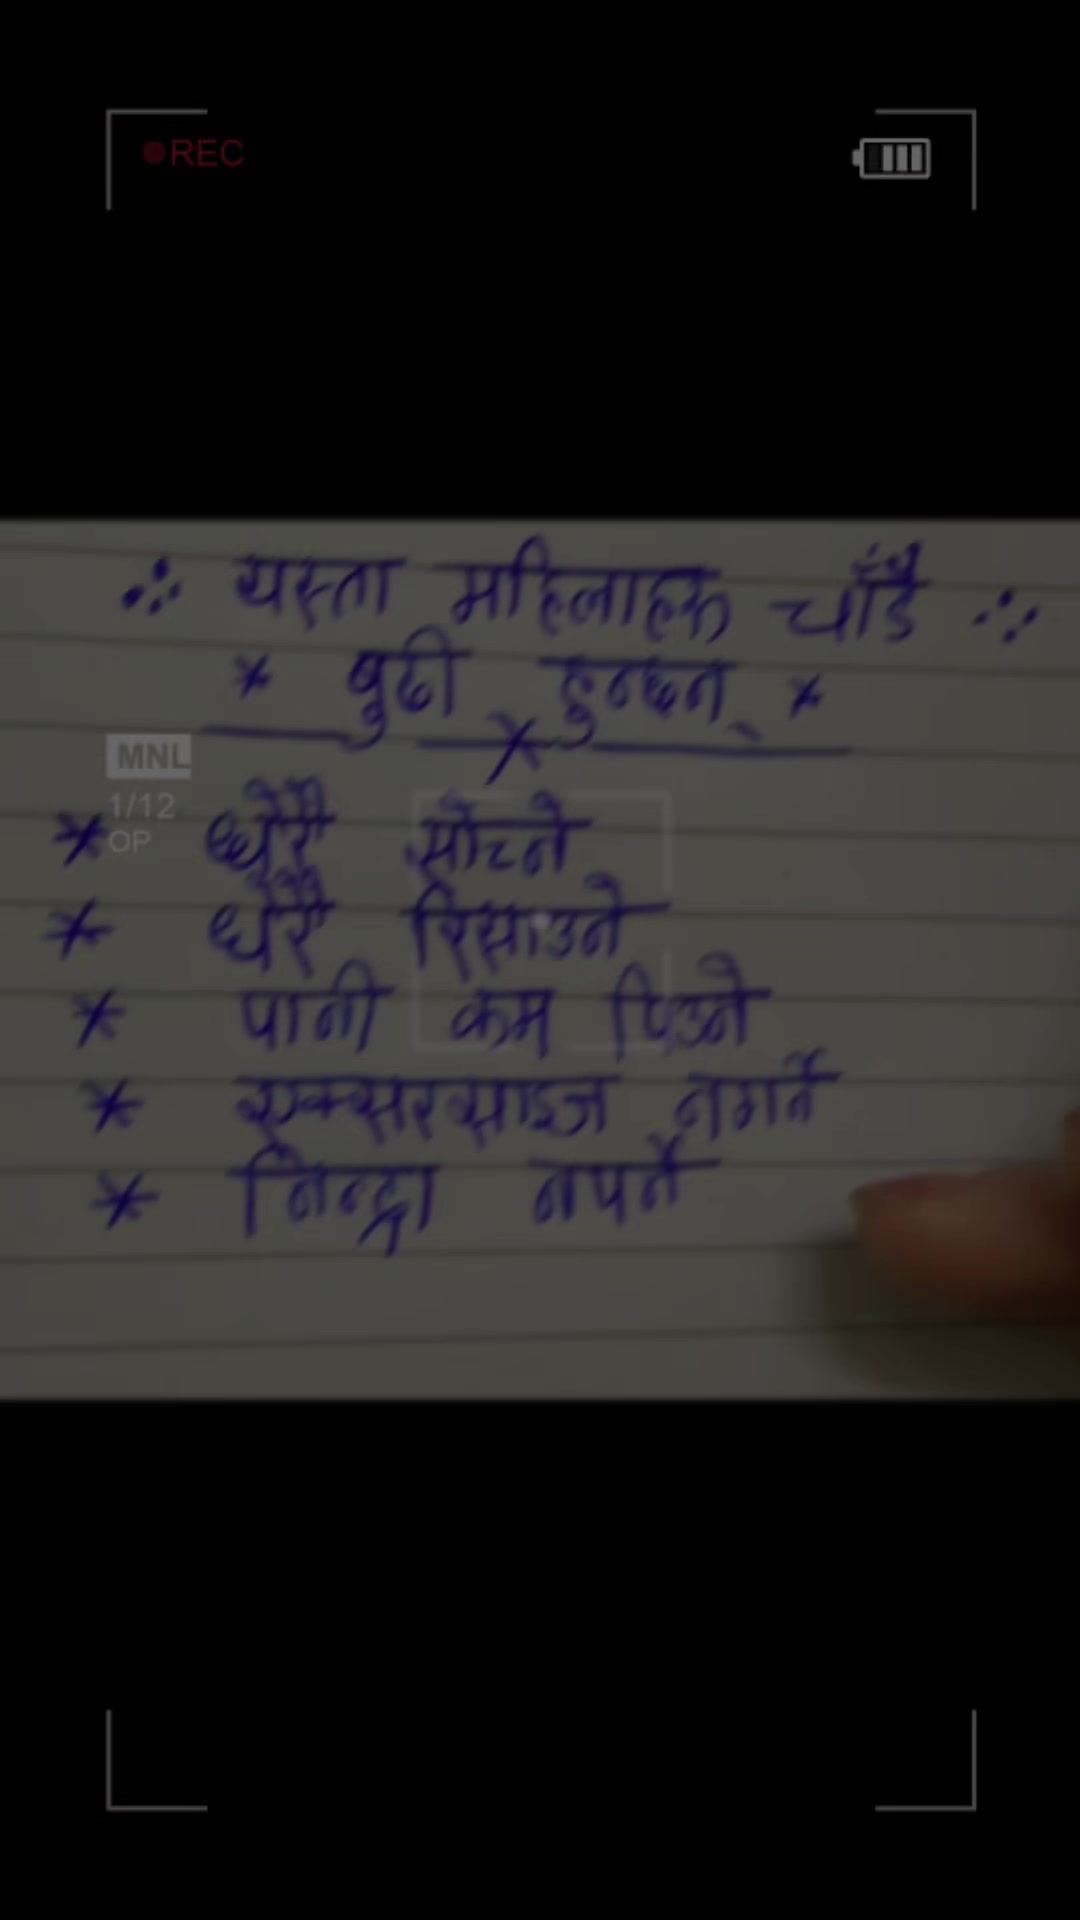 REC
∴ यस्ता महिलाहरू चाँडै ∴
* बुढी हुन्छन् *
MNL
1/12
OP
* धेरै सोच्ने
* धेरै रिसाउने
* पानी कम पिउने
* एक्सरसाइज नगर्ने
* निन्द्रा नपर्ने